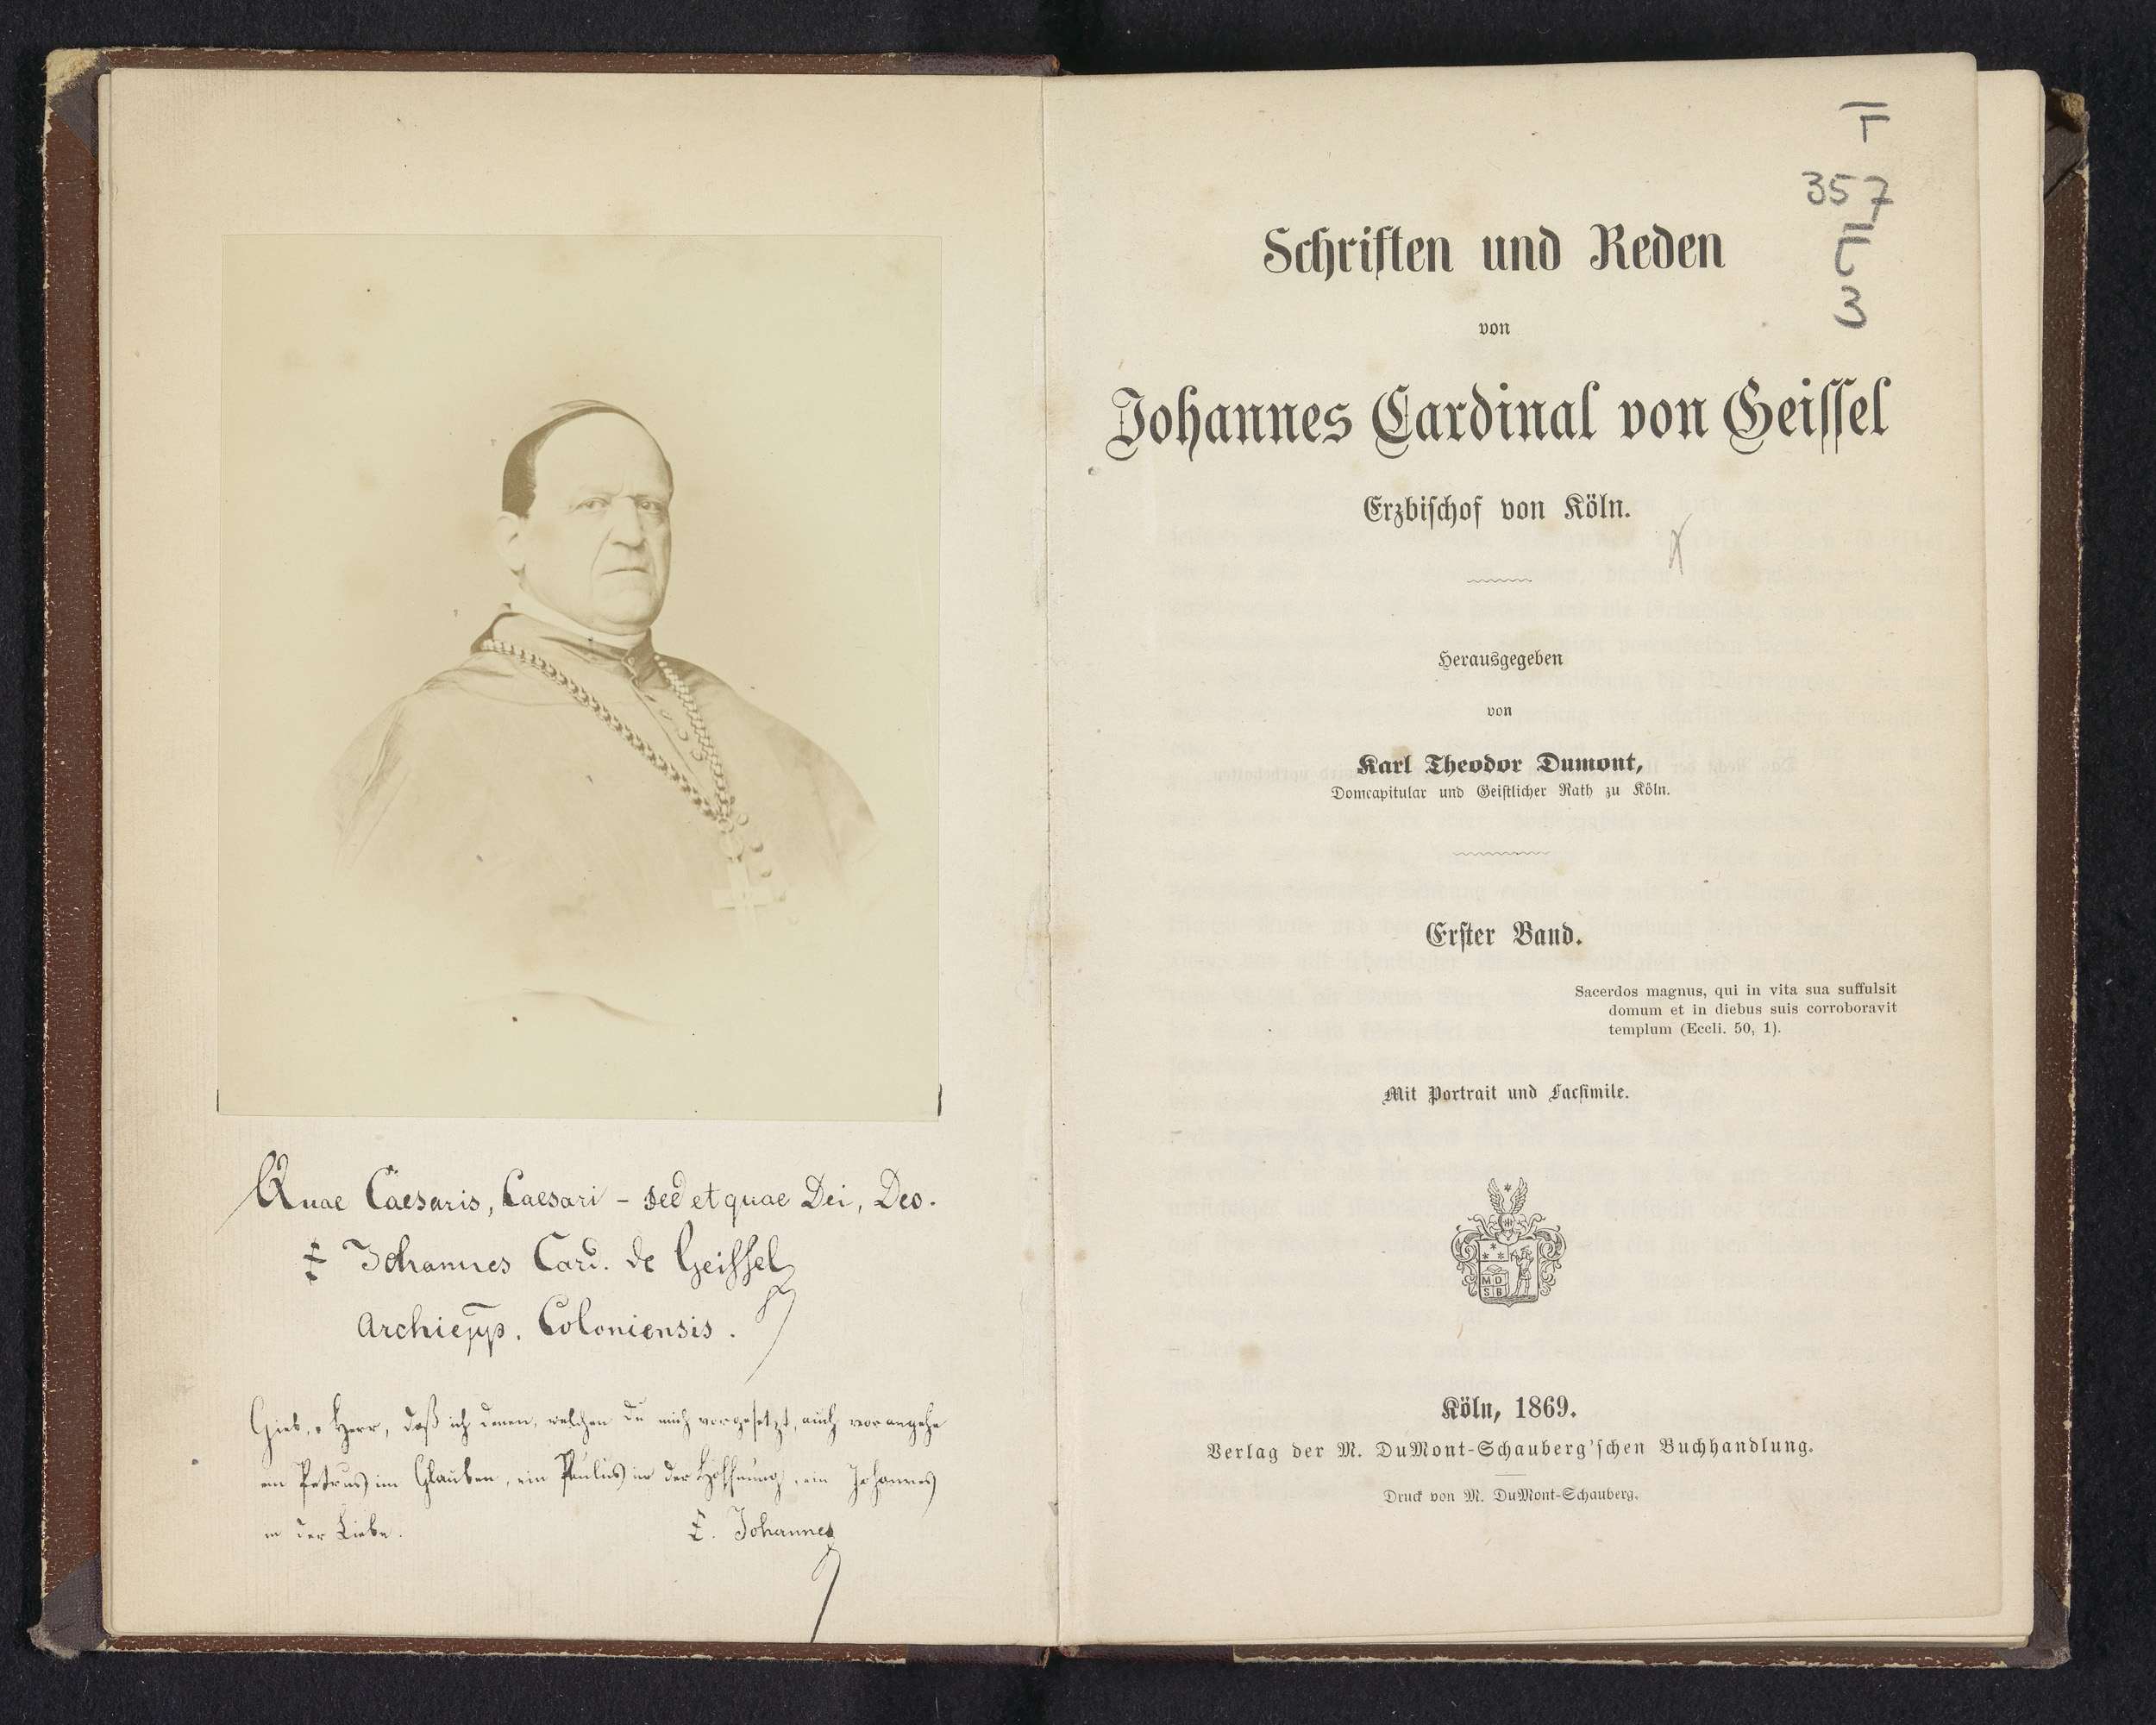 Quae Caesaris, Caesari – sed et quae Dei, Deo.
Johannes Card. de Geissel
Archiepp. Coloniensis.
Gieb, o Herr, daß ich denen, welchen du mich vorgesetzt, auch vorangehe
ein Petrus im Glauben, ein Paulus in der Hoffnung, ein Johannes
in der Liebe.
Johannes
T
357
3
Schriften und Reden
von
Johannes Cardinal von Geissel
Erzbischof von Köln.
Herausgegeben
von
Karl Theodor Dumont,
Domcapitular und Geistlicher Rath zu Köln.
Erster Band.
Sacerdos magnus, qui in vita sua suffulsit
domum et in diebus suis corroboravit
templum (Eccli. 50, 1).
Mit Portrait und Facsimile.
M D
S B
Köln, 1869.
Verlag der M. DuMont-Schauberg'schen Buchhandlung.
Druck von M. DuMont-Schauberg.